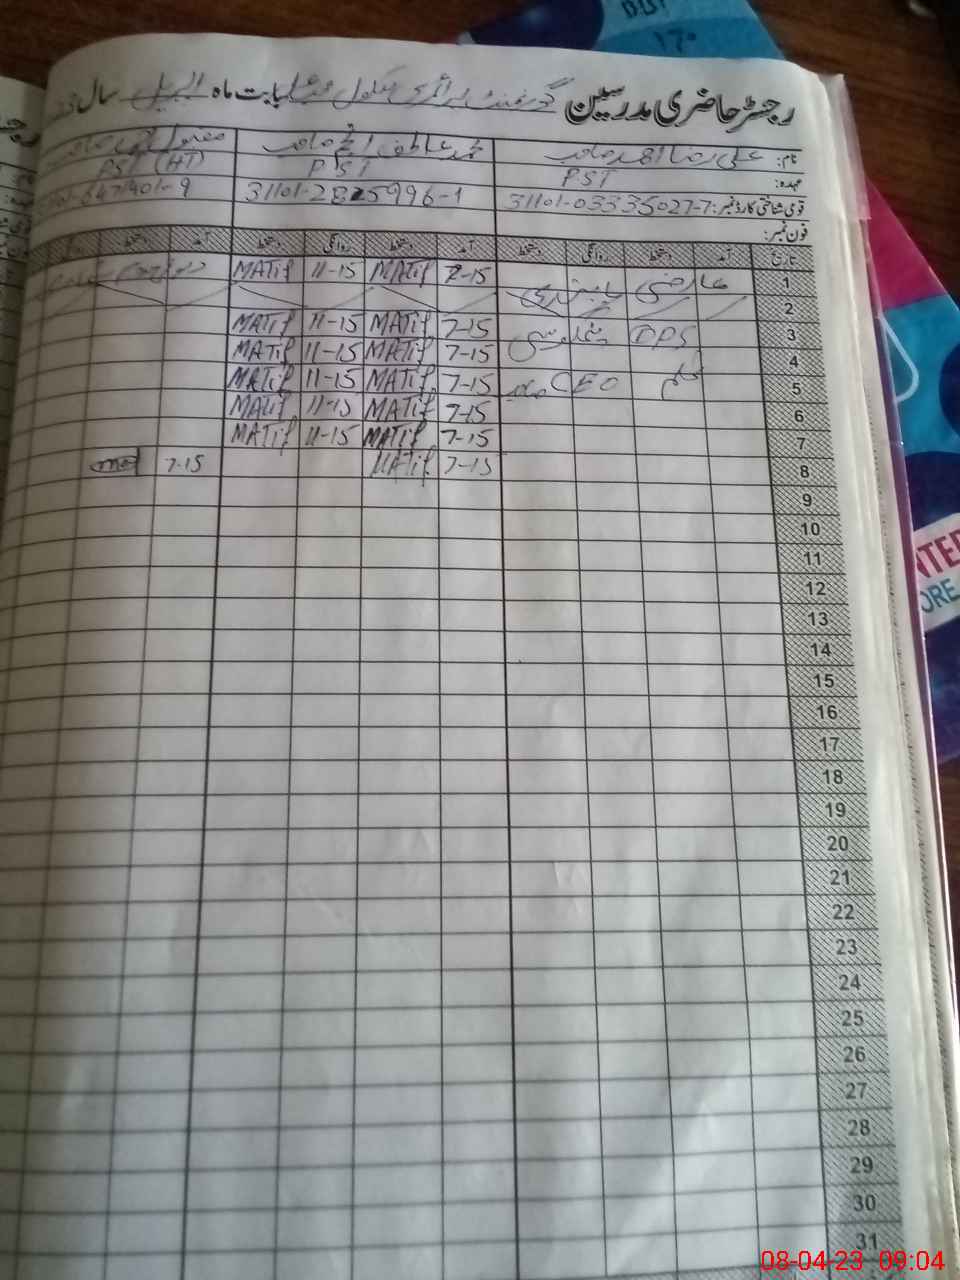 رجسٹر حاضری مدرسین گورنمنٹ پرائمری سکول بابت ماہ اپریل سال 23
نام: علی رضا احمد صاحب محمد عاطف انجم صاحب مقبول احمد
عہدہ: PST PST PST (HT)
قومی شناختی کارڈ نمبر: 31101-03335027-7 31101-2825996-1
فون نمبر:
تاریخ آمد دستخط روانگی دستخط آمد دستخط روانگی دستخط آمد دستخط
1 عارضی 7-15 MATif 11-15 MATif
2
3 DPS 7-15 MATif 11-15 MATif
4 7-15 MATif 11-15 MATif
5 حکم CEO صاحب 7-15 MATif 11-15 MATif
6 7-15 MATif 11-15 MATif
7 7-15 MATif 11-15 MATif
8 7-15 MATif 7-15
9
10
11
12
13
14
15
16
17
18
19
20
21
22
23
24
25
26
27
28
29
30
31
08-04-23 09:04